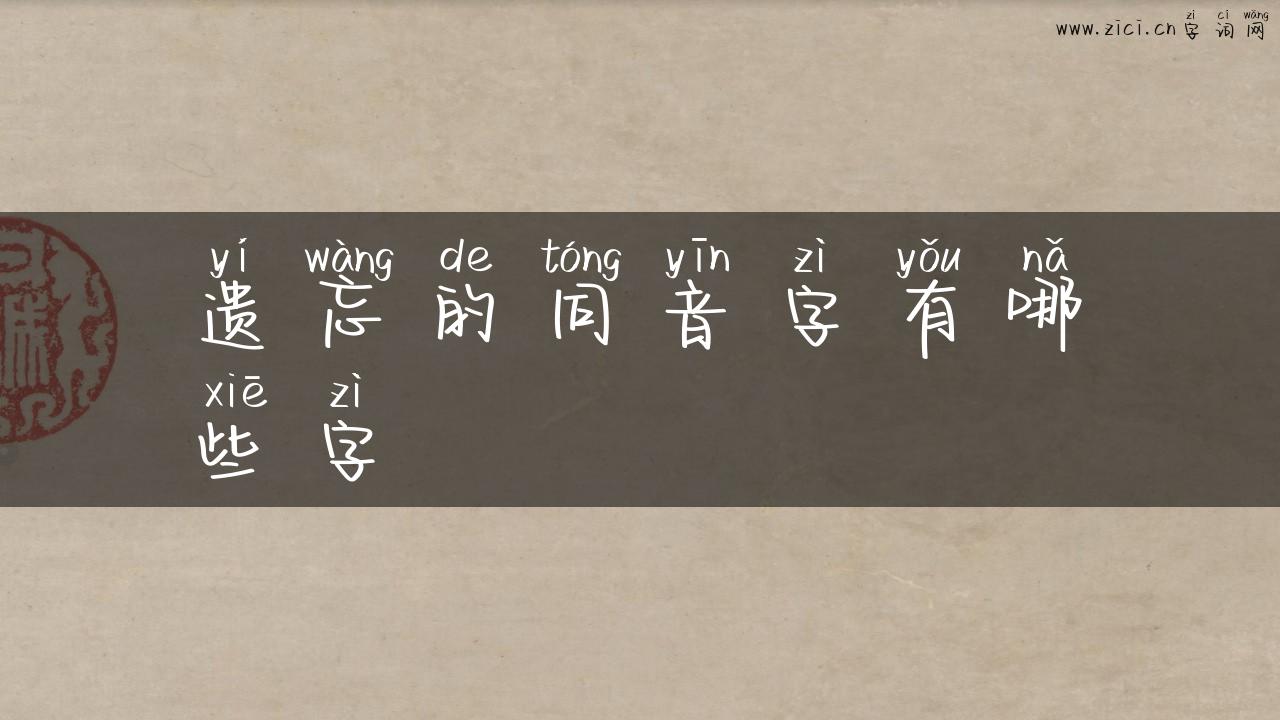 zì cí wǎng
www.zici.cn 字 词 网
yí wàng de tóng yīn zì yǒu nǎ
遗 忘 的 同 音 字 有 哪
xiē zì
些 字